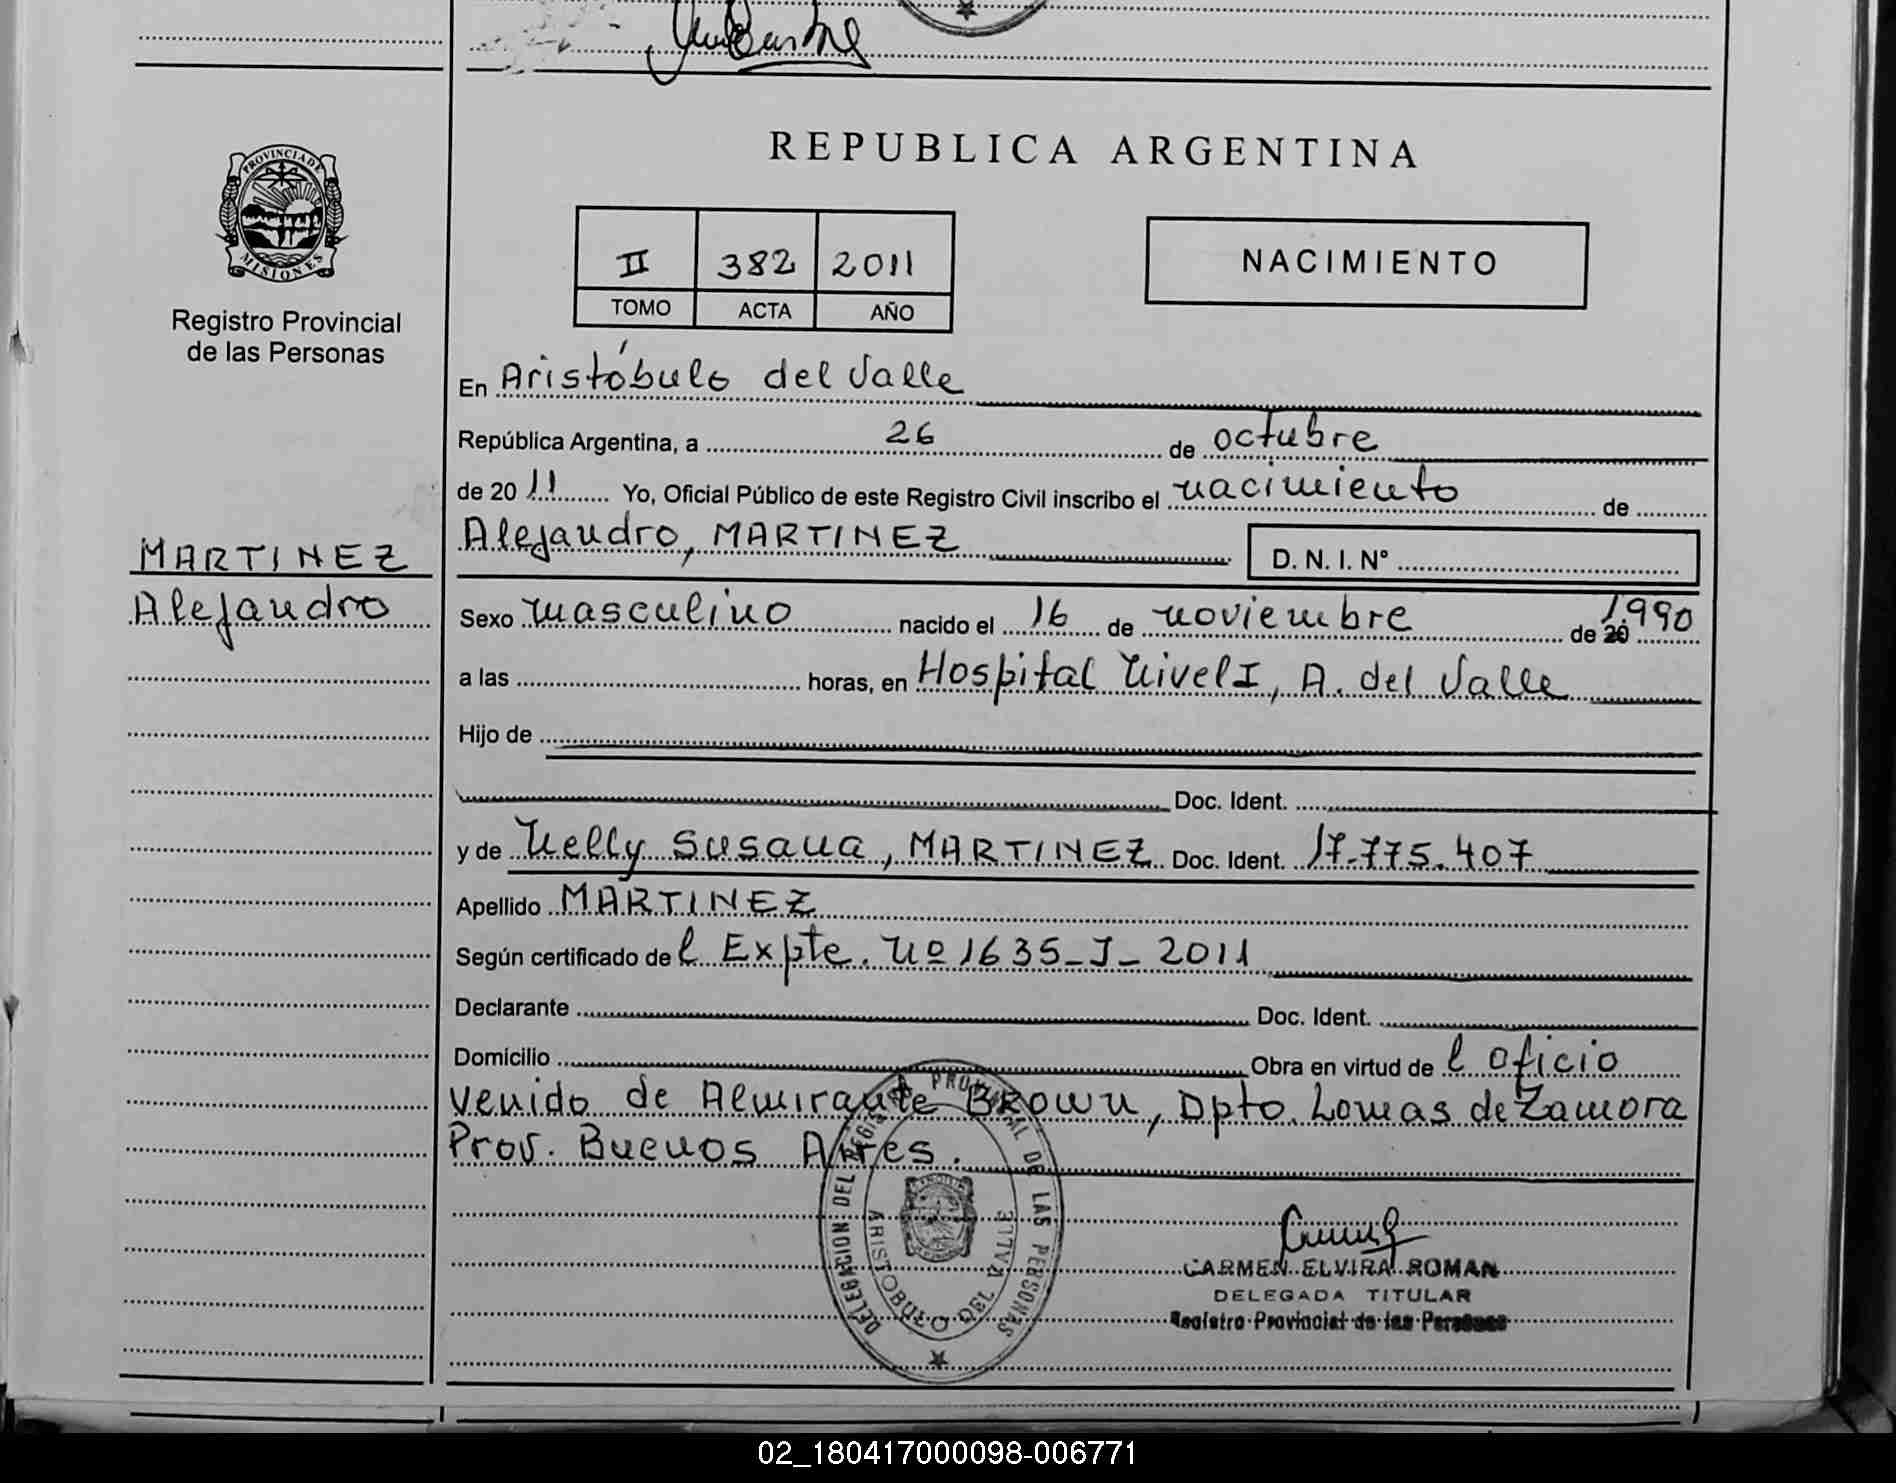 REPUBLICA ARGENTINA
PROVINCIA DE
MISIONES
Registro Provincial
de las Personas
II 382 2011
TOMO ACTA AÑO
NACIMIENTO
En Aristóbulo del Valle
República Argentina, a 26 de octubre
de 2011 Yo, Oficial Público de este Registro Civil inscribo el nacimiento de
Alejandro, MARTINEZ D. N. I. Nº
MARTINEZ
Alejandro
Sexo masculino nacido el 16 de noviembre de 20 1990
a las horas, en Hospital Nivel I, A. del Valle
Hijo de
Doc. Ident.
y de Nelly Susana, MARTINEZ Doc. Ident. 17.775.407
Apellido MARTINEZ
Según certificado del Expte. Nº 1635-J-2011
Declarante Doc. Ident.
Domicilio Obra en virtud del oficio
venido de Almirante Brown, Dpto. Lomas de Zamora
Prov. Buenos Aires.
DELEGACION DEL REGISTRO PROVINCIAL DE LAS PERSONAS
ARISTOBULO DEL VALLE
CARMEN ELVIRA ROMAN
DELEGADA TITULAR
Registro Provincial de las Personas
02_180417000098-006771